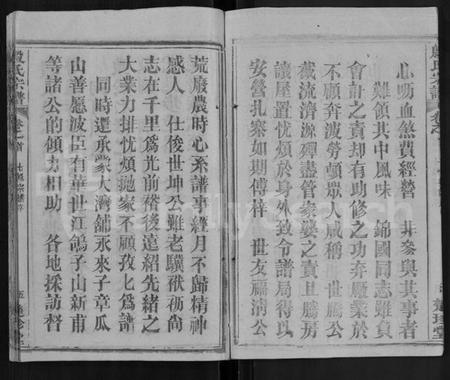 心嘔血煞費經營　其參與其事者
難領其中風味　錦國同志雖負
會計之責却有助修之功弃塵業於
不顧奔波勞頓衆人咸稱　世優公
截流濟源殫盡管家婆之責且騰房
讓屋置扰煩於身外致令譜局得以
安營扎寨如期傳梓　世友福清公
荒廢農時心系譜事經月不歸精神
感人　仕俊世坤公雖老驥猷礽尚
志在千里爲光前裕後遠紹先緒之
大業力排忧煩抛家不顧孜孜爲譜
同時還承蒙大濟舗永來子章瓜
山善愿波臣有華世江鴿子山新甫
等諸公的傾力相助　各地採訪督
殷氏宗譜
卷一首
五